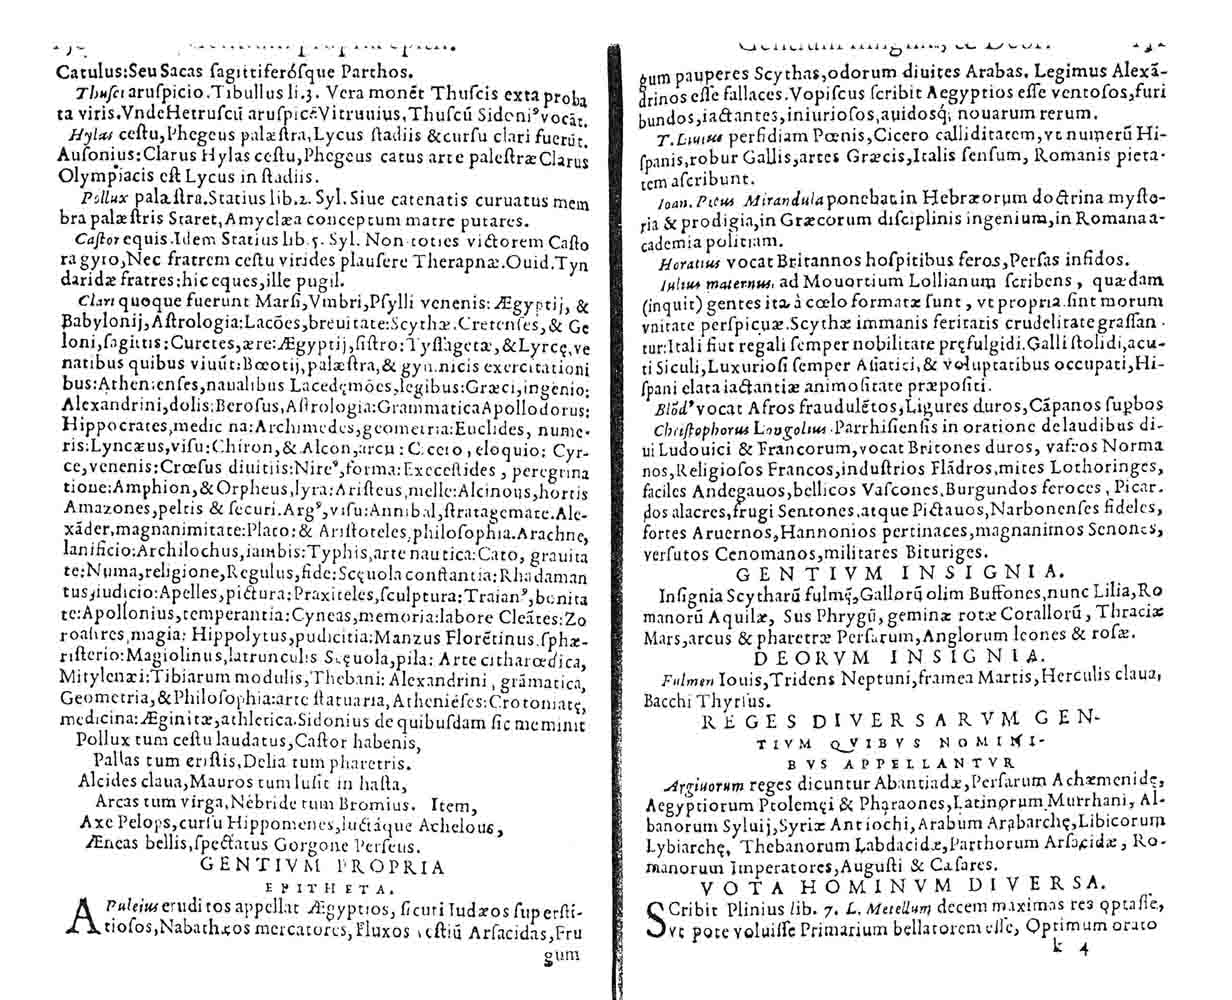 Catulus:Seu Sacas ſagittiferóſque Parthos.
Thuſci aruſpicio.Tibullus li.3. Vera monēt Thuſcis exta proba
ta viris.VndeHetruſcū aruſpicē Vitruuius,Thuſcū Sidoniꝰ vocāt.
Hylas ceſtu,Phegeus palæſtra,Lycus ſtadiis &curſu clari fuerūt.
Auſonius:Clarus Hylas ceſtu,Phegeus catus arte paleſtræ Clarus
Olympiacis eſt Lycus in ſtadiis.
Pollux palæſtra.Statius lib.2. Syl. Siue catenatis curuatus mem
bra palæſtris Staret,Amyclæa conceptum matre putares.
Caſtor equis.Idem Statius lib.5. Syl. Non toties victorem Caſto
ra gyro,Nec fratrem ceſtu virides plauſere Therapnæ.Ouid.Tyn
daridæ fratres:hic eques,ille pugil.
Clari quoque fuerunt Marſi,Vmbri,Pſylli venenis: Ægyptij, &
Babylonij,Aſtrologia:Lacōes,breuitate:Scythæ.Cretenſes,& Ge
loni,ſagittis:Curetes,ære:Ægyptij,ſiſtro:Tyſſagetæ,&Lyrcę,ve
natibus quibus viuūt:Bœotij,palæſtra,& gymnicis exercitationi
bus:Athenienſes,naualibus Lacedęmōes,legibus:Græci,ingenio:
Alexandrini,dolis:Beroſus,Aſtrologia:Grammatica Apollodorus:
Hippocrates,medicina:Archimedes,geometria:Euclides, nume-
ris:Lyncæus,viſu:Chiron,& Alcon,arcu: Cicero, eloquio: Cyr-
ce,venenis:Crœſus diuitiis:Nireꝰ,forma:Execeſtides, peregrina
tione:Amphion,& Orpheus,lyra:Ariſteus,melle:Alcinous,hortis
Amazones,peltis & ſecuri.Argꝰ,viſu:Annibal,ſtratagemate.Ale-
xāder,magnanimitate:Plato:& Ariſtoteles,philoſophia.Arachne,
lanificio:Archilochus,iambis:Typhis,arte nautica:Cato, grauita
te:Numa,religione,Regulus,fide:Scęuola conſtantia:Rhadaman
tus,iudicio:Apelles,pictura:Praxiteles,ſculptura:Traianꝰ,bonita
te:Apollonius,temperantia:Cyneas,memoria:labore Cleātes:Zo
roaſtres,magia: Hippolytus,pudicitia:Manzus Florētinus.ſphæ-
riſterio:Magiolinus,latrunculis Scęuola,pila: Arte citharœdica,
Mitylenæi:Tibiarum modulis,Thebani: Alexandrini,grāmatica,
Geometria,& Philoſophia:arte ſtatuaria, Atheniēſes:Crotoniatę,
medicina:Æginitæ,athletica.Sidonius de quibuſdam ſic meminit
Pollux tum ceſtu laudatus,Caſtor habenis,
Pallas tum criſtis,Delia tum pharetris.
Alcides claua,Mauros tum luſit in haſta,
Arcas tum virga,Nebride tum Bromius. Item,
Axe Pelops,curſu Hippomenes,luctáque Achelous,
Æneas bellis,ſpectatus Gorgone Perſeus.
GENTIVM PROPRIA
EPITHETA.
APuleius eruditos appellat Ægyptios, ſicuti Iudæos ſuperſti-
tioſos,Nabathęos mercatores, Fluxos veſtiū Arſacidas, Fru
gum
gum pauperes Scythas,odorum diuites Arabas. Legimus Alexā-
drinos eſſe fallaces.Vopiſcus ſcribit Aegyptios eſſe ventoſos,furi
bundos,iactantes,iniurioſos,auidosq; nouarum rerum.
T.Liuius perfidiam Pœnis,Cicero calliditatem,vt numerū Hi-
ſpanis,robur Gallis,artes Græcis,Italis ſenſum, Romanis pieta-
tem aſcribunt.
Ioan. Picus Mirandula ponebat in Hebræorum doctrina myſte-
ria & prodigia,in Græcorum diſciplinis ingenium,in Romana a-
cademia politiam.
Horatius vocat Britannos hoſpitibus feros,Perſas infidos.
Iulius maternus, ad Mouortium Lollianum ſcribens, quædam
(inquit) gentes ita à cœlo formatæ ſunt, vt propria.ſint morum
vnitate perſpicuæ.Scythæ immanis feritatis crudelitate graſſan-
tur:Itali fiut regali ſemper nobilitate pręfulgidi.Galli ſtolidi,acu-
ti Siculi,Luxurioſi ſemper Aſiatici,& voluptatibus occupati,Hi-
ſpani elata iactantiæ animoſitate præpoſiti.
Blōdꝰ vocat Afros fraudulētos,Ligures duros,Cāpanos ſuꝑbos
Chriſtophorus Longolius.Parrhiſienſis in oratione delaudibus di-
ui Ludouici & Francorum,vocat Britones duros, vafros Norma
nos,Religioſos Francos,induſtrios Flādros,mites Lothoringes,
faciles Andegauos,bellicos Vaſcones,Burgundos feroces, Picar-
dos alacres,frugi Sentones.atque Pictauos,Narbonenſes fideles,
fortes Aruernos,Hannonios pertinaces,magnanimos Senones,
verſutos Cenomanos,militares Bituriges.
GENTIVM INSIGNIA.
Inſignia Scytharū fulmę,Gallorū olim Buffones,nunc Lilia,Ro
manorū Aquilæ, Sus Phrygū, geminæ rotæ Corallorū, Thraciæ
Mars,arcus & pharetræ Perſarum,Anglorum lcones & roſæ.
DEORVM INSIGNIA.
Fulmen Iouis,Tridens Neptuni,framea Martis,Herculis claua,
Bacchi Thyrſus.
REGES DIVERSARVM GEN-
TIVM QVIBVS NOMINI-
BVS APPELLANTVR
Argiuorum reges dicuntur Abantiadæ,Perſarum Achæmenidę,
Aegyptiorum Ptolemęi & Pharaones,Latinorum Murrhani, Al-
banorum Syluij,Syriæ Antiochi,Arabum Arabarchę,Libicorum
Lybiarchę, Thebanorum Labdacidæ,Parthorum Arſacidæ, Ro-
manorum Imperatores,Auguſti & Cæſares.
VOTA HOMINVM DIVERSA.
SCribit Plinius lib. 7. L. Metellum decem maximas res optaſſe,
Vt pote voluiſſe Primarium bellatorem eſſe, Optimum orato
k 4